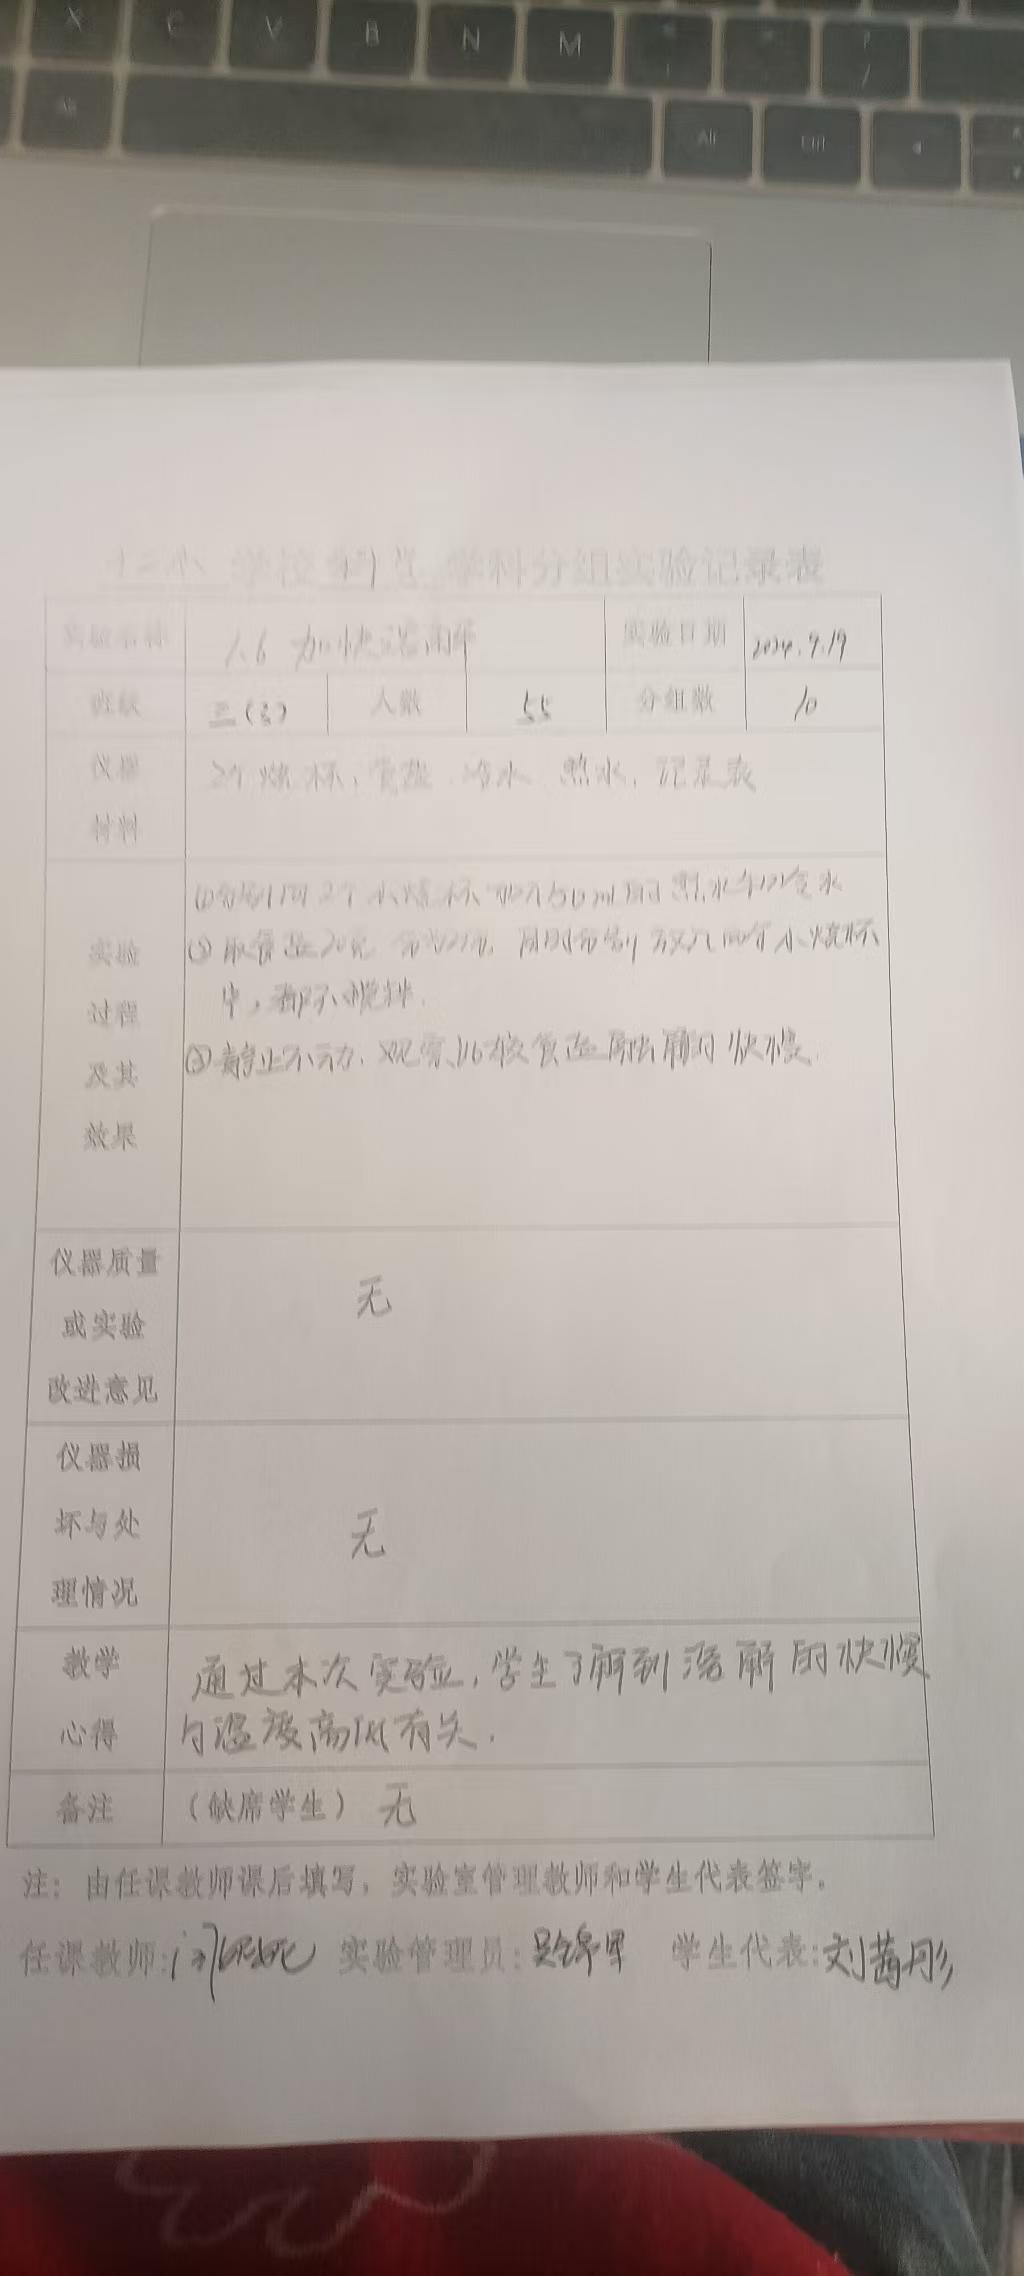 X C V B N M
Alt Alt Ctrl
十二小 学校 科学 学科分组实验记录表
实验名称 1.6 加快溶解 实验日期 2024.9.19
班级 三(3) 人数 55 分组数 10
仪器材料 2个烧杯、食盐、冷水、热水、记录表
实验过程及其效果
①分别向2个小烧杯加入50ml的热水和冷水
②取食盐20克 分为2份, 同时分别放入两个小烧杯
中,都不搅拌.
③静止不动.观察比较食盐溶解的快慢.
仪器质量或实验改进意见 无
仪器损坏与处理情况 无
教学心得 通过本次实验,学生了解到溶解的快慢
与温度高低有关.
备注 (缺席学生) 无
注:由任课教师课后填写,实验室管理教师和学生代表签字。
任课教师: 实验管理员: 学生代表:刘茜彤